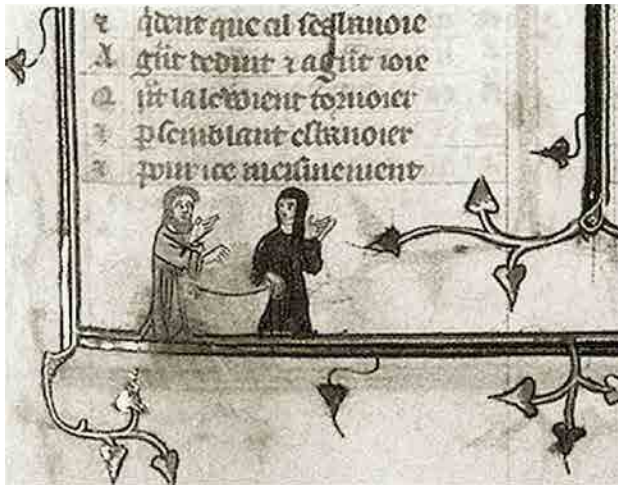 ⁊ qident que cil sesbanoie
A gñt deduit ⁊ a gñt ioie
Q ñt la le voient tornoier
⁊ p semblant esbanoier
⁊ pour ice meismement